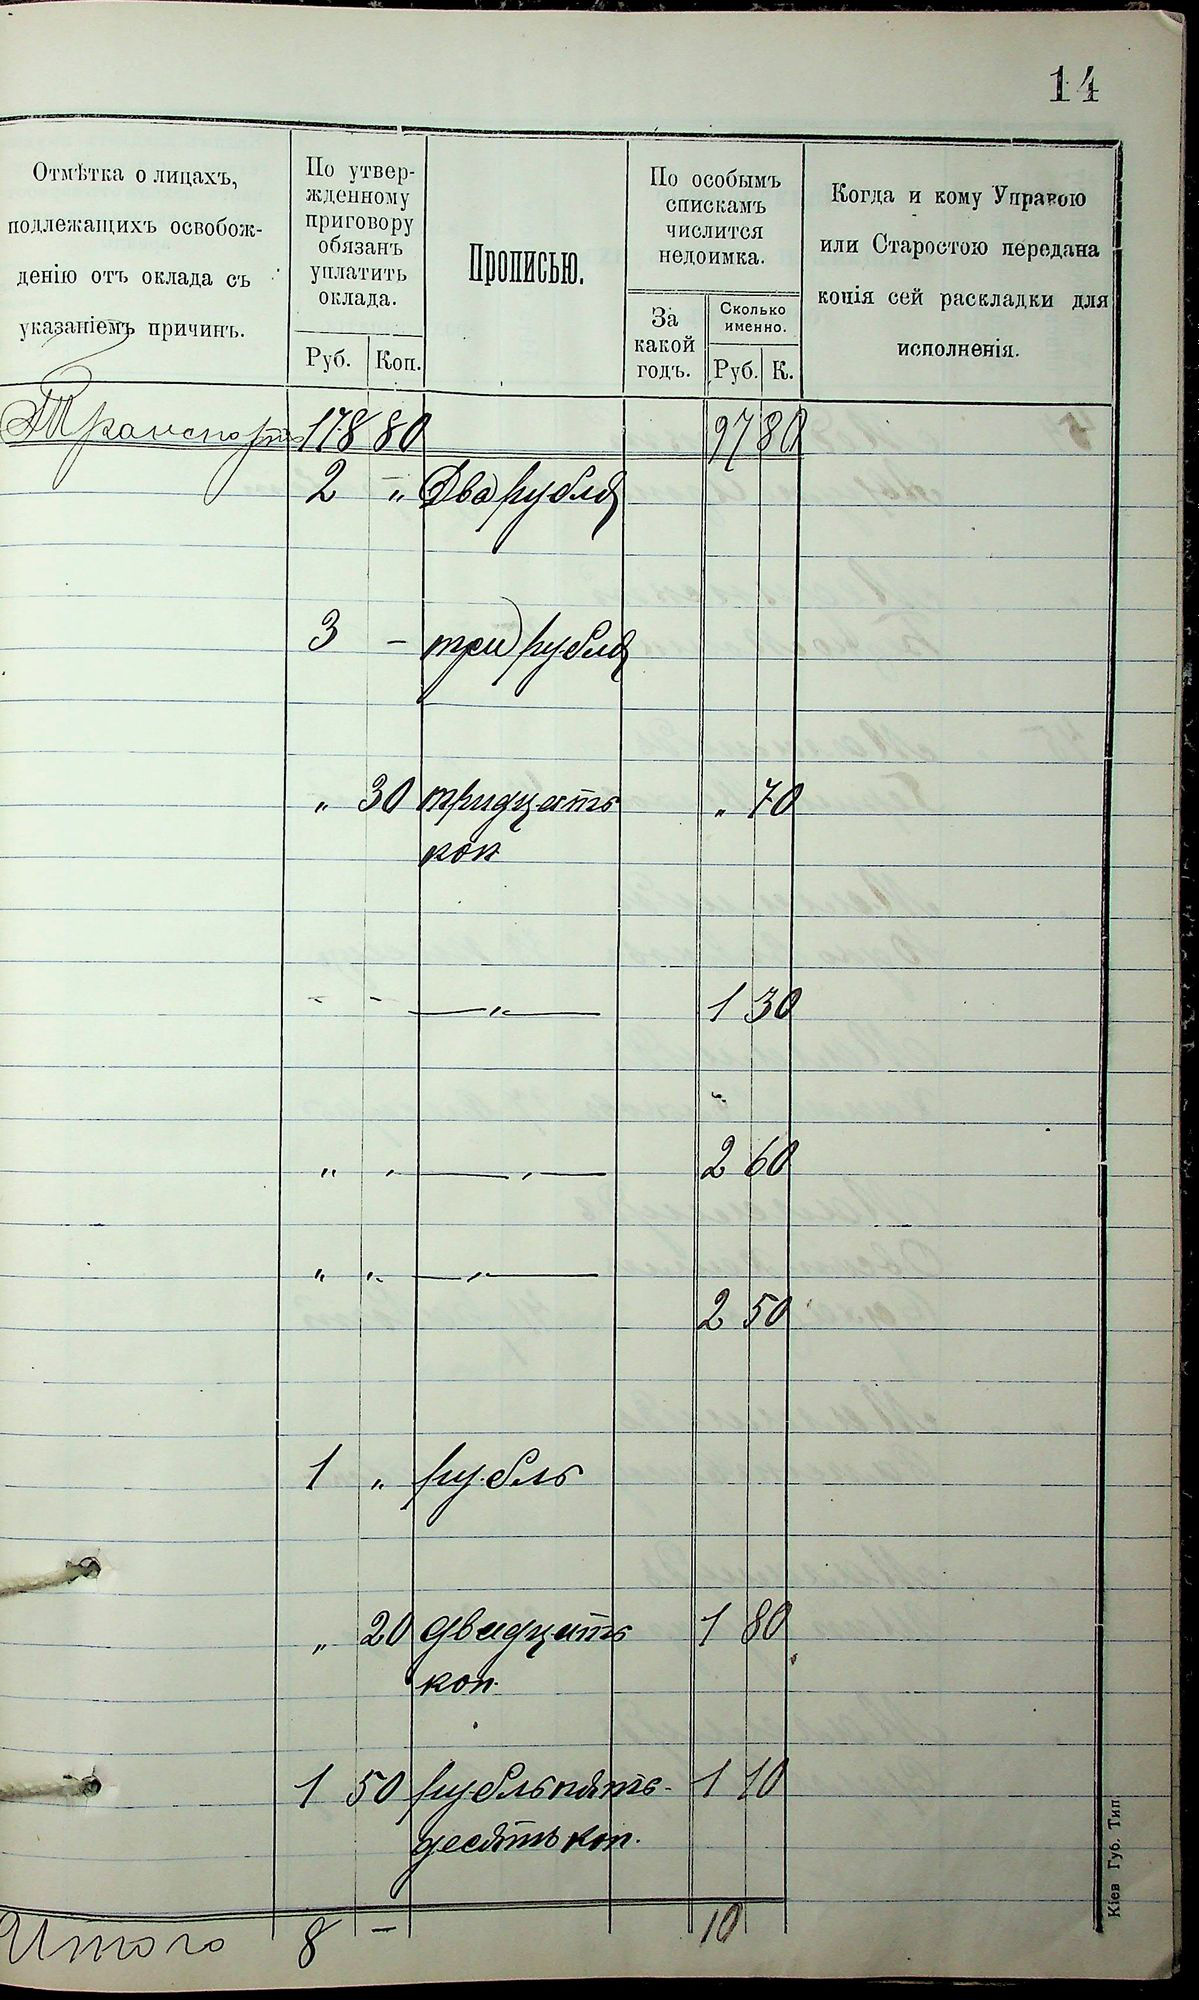 14
Отмѣтка о лицахъ,
подлежащихъ освобож-
денію отъ оклада съ
указаніемъ причинъ.
По утвер-
жденному
приговору
обязанъ
уплатить
оклада.
Руб. Коп.
Прописью.
По особымъ
спискамъ
числится
недоимка.
За
какой
годъ.
Сколько
именно.
Руб. К.
Когда и кому Управою
или Старостою передана
копія сей раскладки для
исполненія.
Транспортъ 178 80 97 80
2 — „ Два рубля
3 — три рубля
„ 30 тридцать „ 70
коп
- - —„— 1 30
„ „ —„— 2 60
„ „ —„—
2 50
1 „ рубль
„ 20 двадцать 1 80
коп.
1 50 рубль пять- 1 10
десять коп.
Итого 8 — 10
Кіев Губ. Тип.